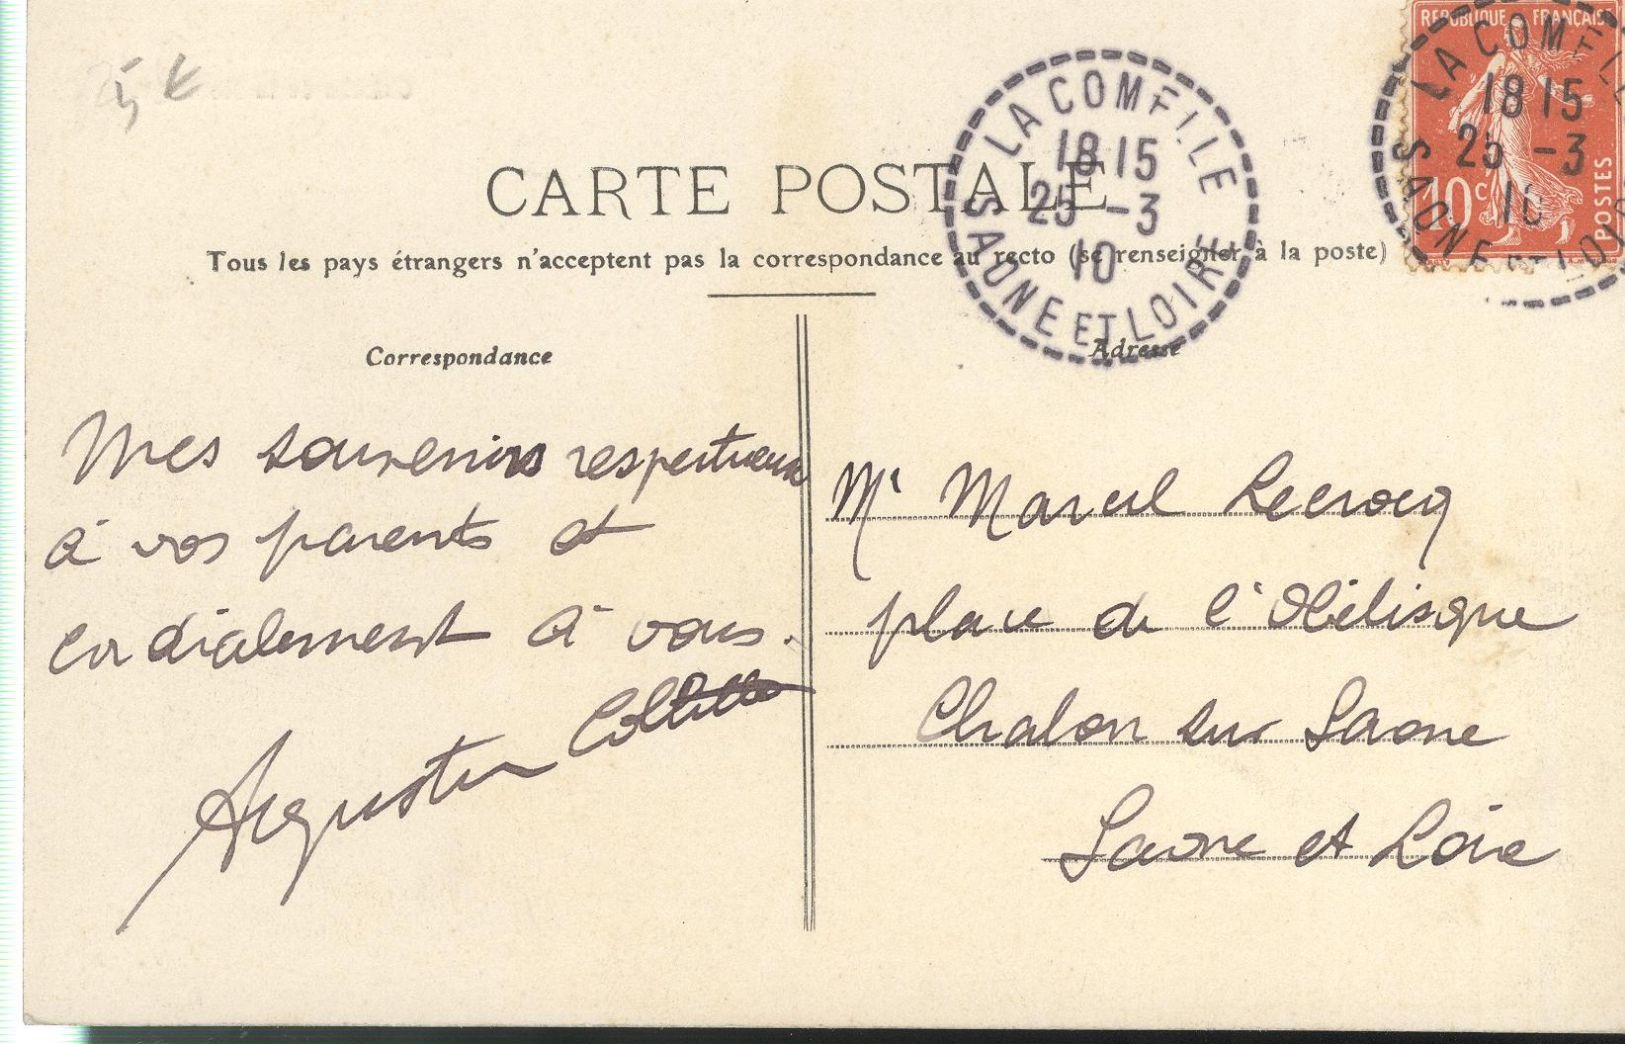 5 €
CARTE POSTALE
Tous les pays étrangers n'acceptent pas la correspondance au recto (se renseigner à la poste)
LA COMELLE
18 15
25 -3
10
SAONE ET LOIRE
REPUBLIQUE FRANÇAISE
10c
POSTES
LA COMELLE
18 15
25 -3
10
SAONE ET LOIRE
Correspondance
Mes souvenirs respectueux
à vos parents et
cordialement à vous.
Augustin
Adresse
Mr Marcel Lecrocq
place de l'Obélisque
Chalon sur Saone
Saone et Loire